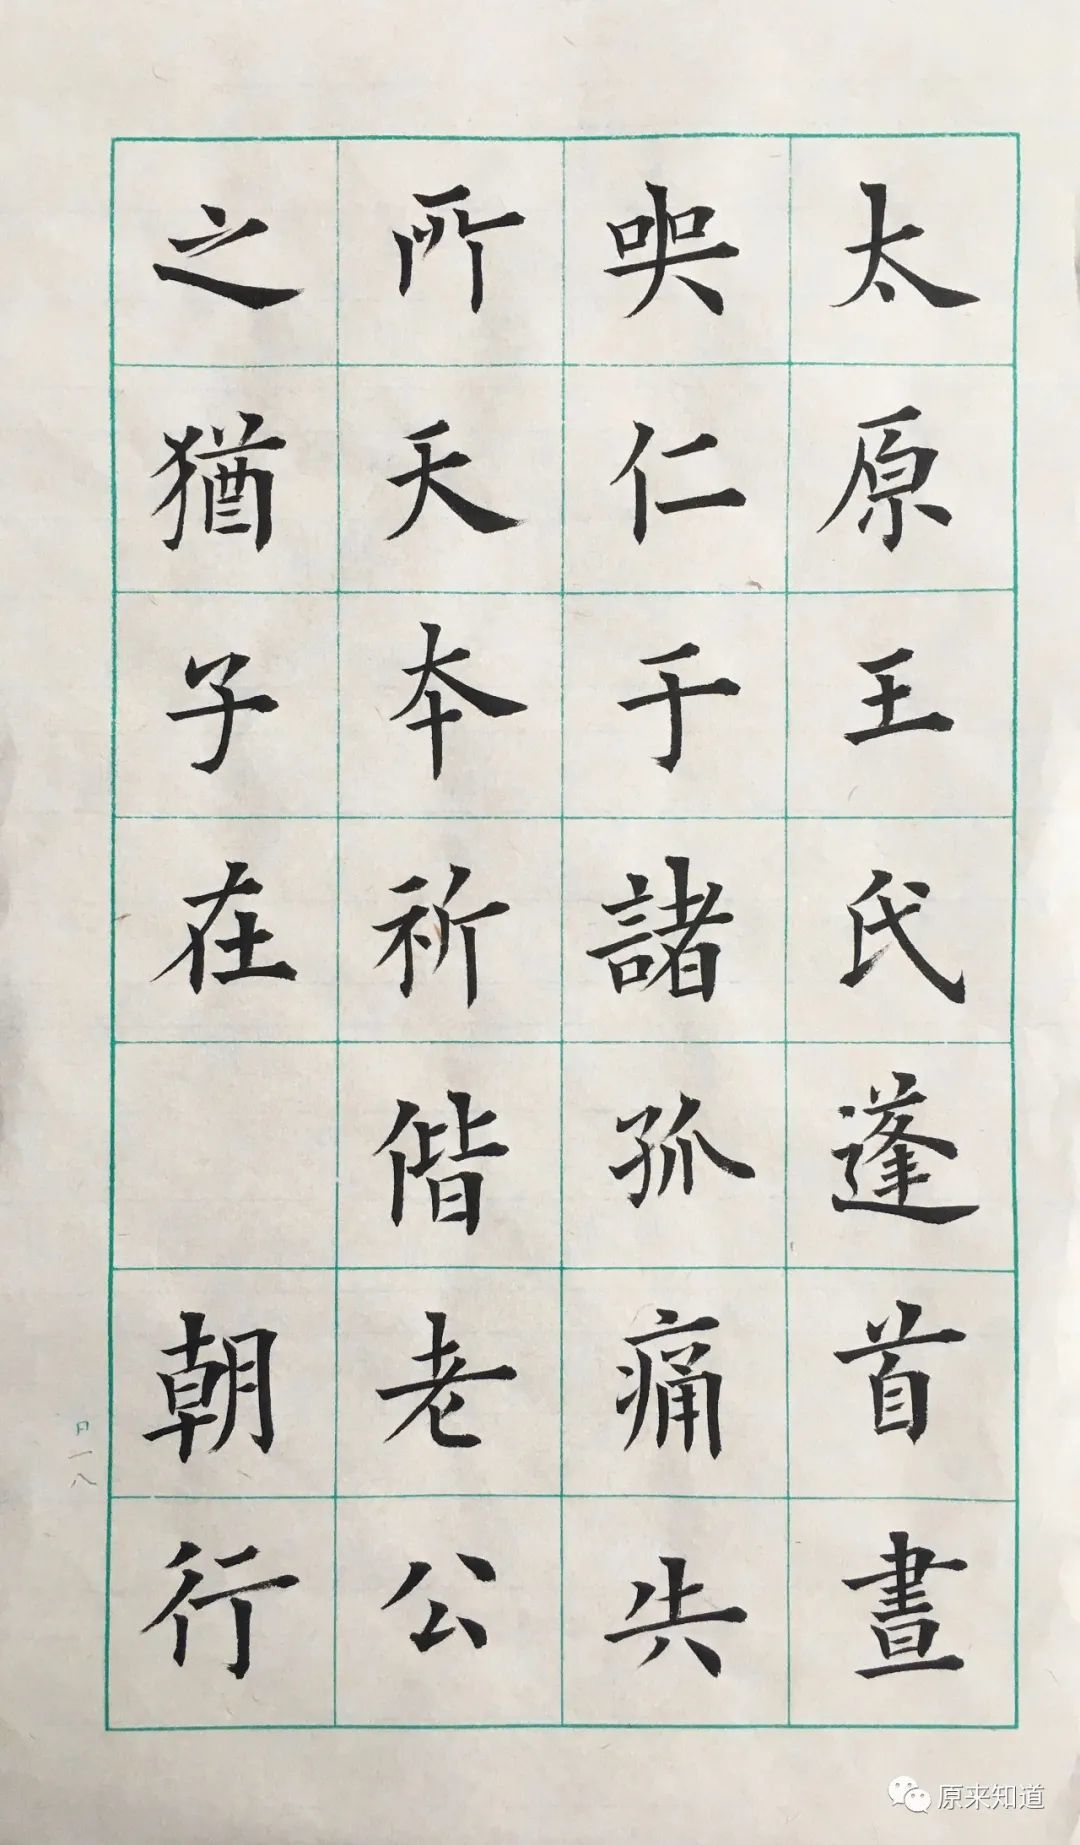 太原王氏蓬首晝
哭仁于諸孤痛失
所天本祈偕老公
之猶子在朝行
日一八
原来知道